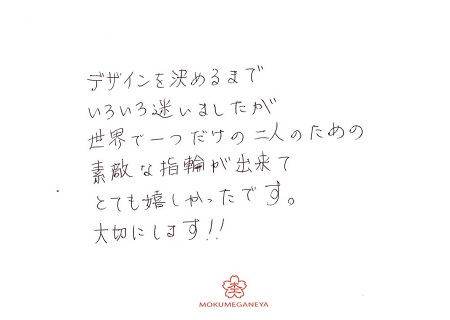 デザインを決めるまで
いろいろ迷いましたが
世界で一つだけの二人のための
素敵な指輪が出来て
とても嬉しかったです。
大切にします!!
MOKUMEGANEYA